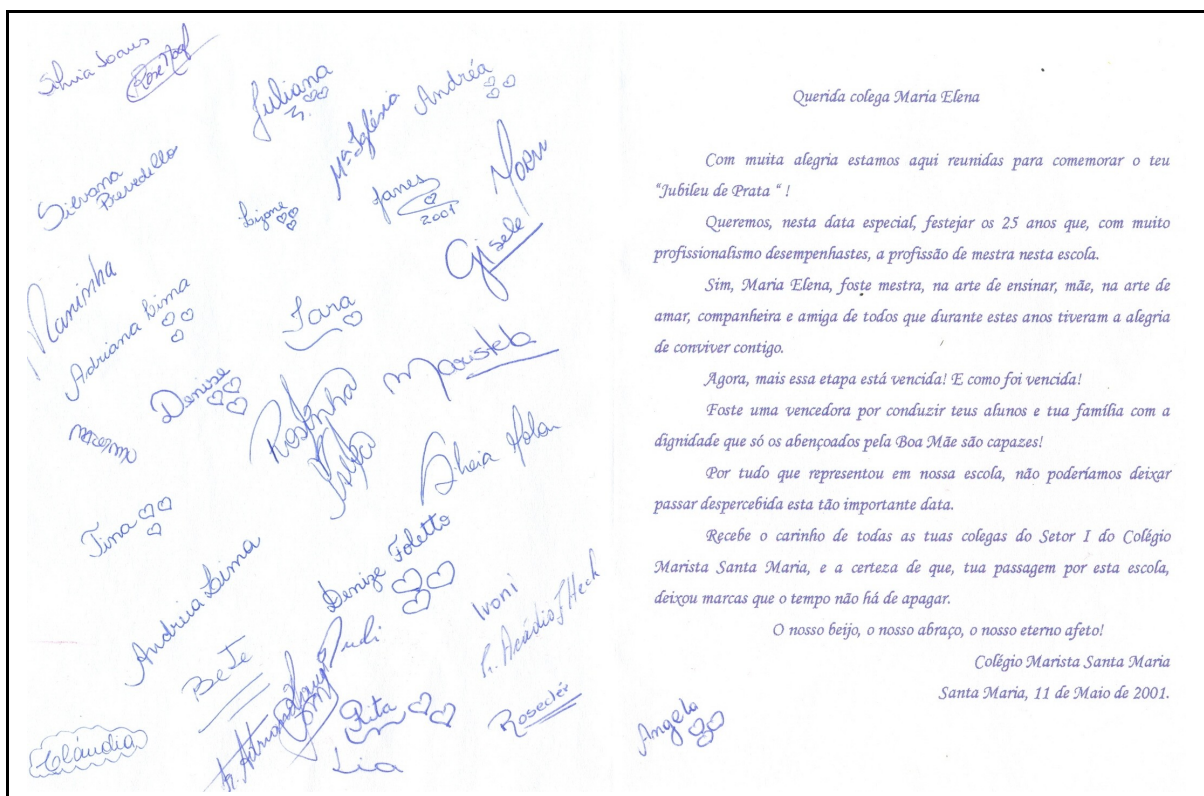 Silvia Soares
Juliana
Andréa
Mª Iglésia
Silvana
Brevedello
Lizone
James
2001
Gisele
Maninha
Adriana Lima
Iara
Denise
Maristela
Rosinha
Sheia
Tina
Andreia Lima
Denize Foletto
Ivoni
Bete
Rudi
Ir. Arcádio J Heck
Rita
Rosecler
Cláudia
Lia
Querida colega Maria Elena
Com muita alegria estamos aqui reunidas para comemorar o teu
"Jubileu de Prata “ !
Queremos, nesta data especial, festejar os 25 anos que, com muito
profissionalismo desempenhastes, a profissão de mestra nesta escola.
Sim, Maria Elena, foste mestra, na arte de ensinar, mãe, na arte de
amar, companheira e amiga de todos que durante estes anos tiveram a alegria
de conviver contigo.
Agora, mais essa etapa está vencida! E como foi vencida!
Foste uma vencedora por conduzir teus alunos e tua família com a
dignidade que só os abençoados pela Boa Mãe são capazes!
Por tudo que representou em nossa escola, não poderíamos deixar
passar despercebida esta tão importante data.
Recebe o carinho de todas as tuas colegas do Setor I do Colégio
Marista Santa Maria, e a certeza de que, tua passagem por esta escola,
deixou marcas que o tempo não há de apagar.
O nosso beijo, o nosso abraço, o nosso eterno afeto!
Colégio Marista Santa Maria
Santa Maria, 11 de Maio de 2001.
Angela